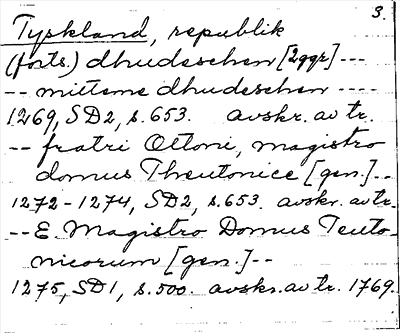 3.
Tyskland, republik
(forts.) dhudeschen [2ggr] ---
-- mitteme dhudeschen ----
1269, SD2, s. 653. avskr. av tr.
-- fratri Ottoni, magistro
domus Theutonice [gen.] --
1272-1274, SD2, s. 653. avskr. av tr.
-- E. Magistro Domus Teuto-
nicorum [gen.] --
1275, SD1, s. 500. avskr. av tr. 1769.